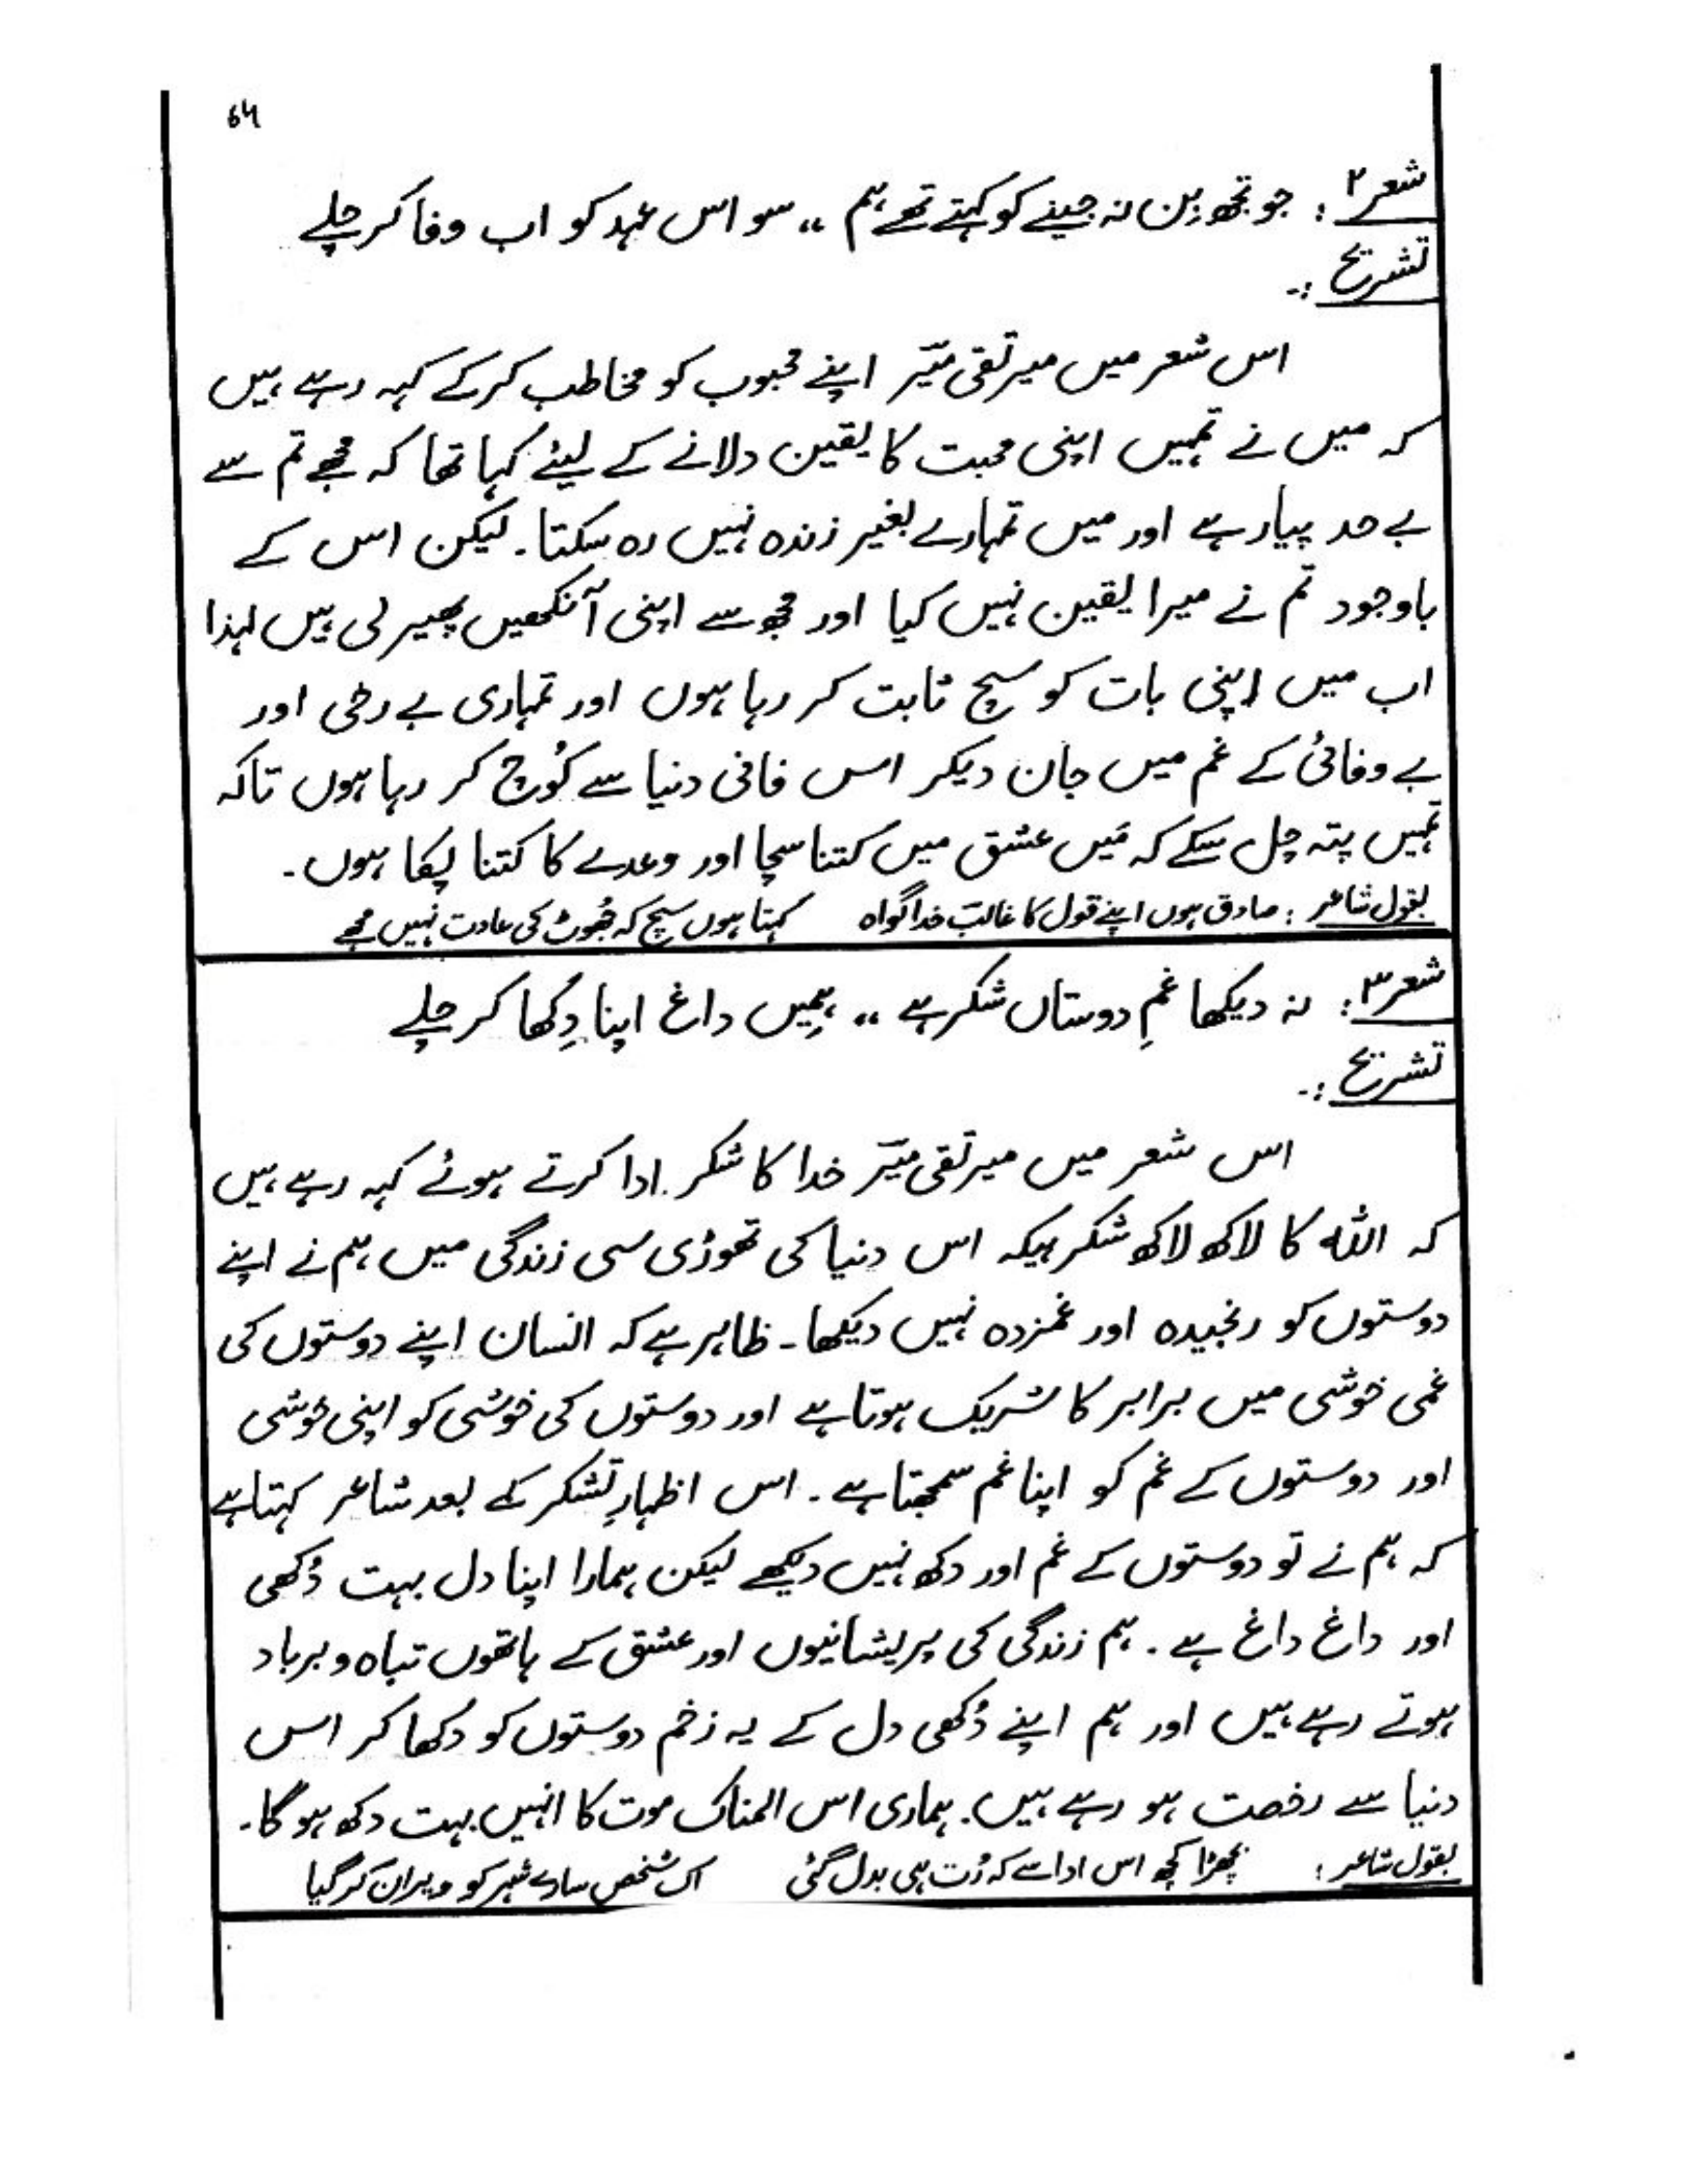 64
شعر ۲: جو تجھ بِن نہ جینے کو کہتے تھے ہم ،، سو اس عہد کو اب وفا کر چلے
تشریح :-
اس شعر میں میر تقی میؔر اپنے محبوب کو مخاطب کرکے کہہ رہے ہیں
کہ میں نے تمہیں اپنی محبت کا یقین دلانے کے لیئے کہا تھا کہ مجھے تم سے
بے حد پیار ہے اور میں تمہارے بغیر زندہ نہیں رہ سکتا۔ لیکن اس کے
باوجود تم نے میرا یقین نہیں کیا اور مجھ سے اپنی آنکھیں پھیر لی ہیں لہذا
اب میں اپنی بات کو سچ ثابت کر رہا ہوں اور تمہاری بے رخی اور
بے وفائی کے غم میں جان دیکر اس فانی دنیا سے کُوچ کر رہا ہوں تاکہ
تمہیں پتہ چل سکے کہ مَیں عشق میں کتنا سچا اور وعدے کا کتنا پکا ہوں۔
بقول شاعر : صادق ہوں اپنے قول کا غالبؔ خدا گواہ کہتا ہوں سچ کہ جُھوٹ کی عادت نہیں مجھے
شعر ۳: نہ دیکھا غمِ دوستاں شکر ہے ،، ہمِیں داغ اپنا دِکھا کر چلے
تشریح :-
اس شعر میں میر تقی میؔر خدا کا شکر ادا کرتے ہوئے کہہ رہے ہیں
کہ اللہ کا لاکھ لاکھ شکر ہیکہ اس دنیا کی تھوڑی سی زندگی میں ہم نے اپنے
دوستوں کو رنجیدہ اور غمزدہ نہیں دیکھا۔ ظاہر ہے کہ انسان اپنے دوستوں کی
غمی خوشی میں برابر کا شریک ہوتا ہے اور دوستوں کی خوشی کو اپنی خوشی
اور دوستوں کے غم کو اپنا غم سمجھتا ہے۔ اس اظہارِ تشکر کے بعد شاعر کہتا ہے
کہ ہم نے تو دوستوں کے غم اور دکھ نہیں دیکھے لیکن ہمارا اپنا دل بہت دُکھی
اور داغ داغ ہے۔ ہم زندگی کی پریشانیوں اور عشق کے ہاتھوں تباہ و برباد
ہوتے رہے ہیں اور ہم اپنے دُکھی دل کے یہ زخم دوستوں کو دکھا کر اس
دنیا سے رخصت ہو رہے ہیں۔ ہماری اس المناک موت کا انہیں بہت دکھ ہو گا۔
بقول شاعر : بچھڑا کچھ اس ادا سے کہ رُت ہی بدل گئی اک شخص سارے شہر کو ویران کر گیا